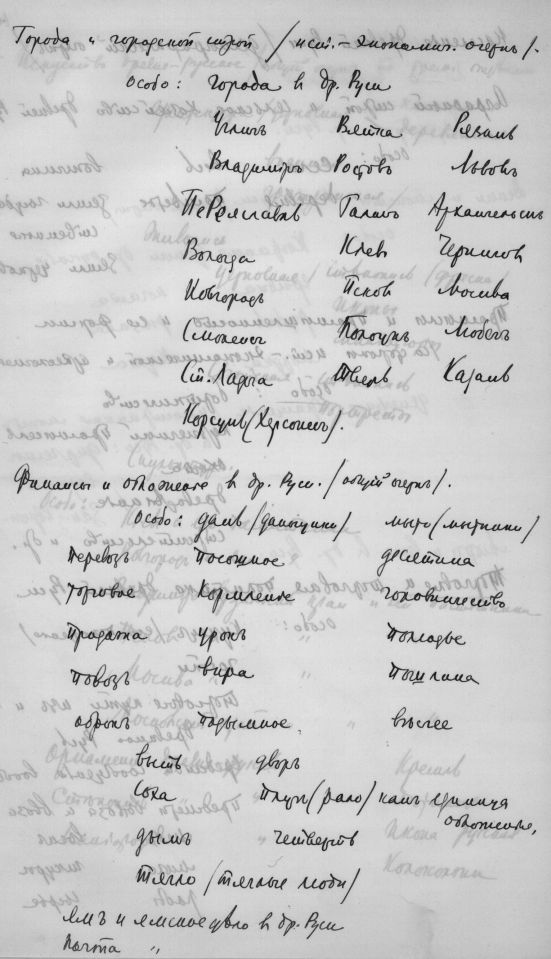 Города и городской строй / ист.–экономич. очеркъ /.
особо: города в др. Руси
Угличъ Вятка Рязань
Владимиръ Ростовъ Львовъ
Переяславль Галичъ Архангельскъ
Вологда Киев Чернигов
Новгородъ Псков Москва
Смоленск Полоцкъ Любечъ
Ст. Ладога Тверь Казань
Корсунь (Херсонесъ).
Финансы и обложение в др. Руси. / общий очеркъ /.
особо: дань / даньщики / мыто (мытники)
перевозъ посошное десятина
торговое Кормление головничество
продажа урокъ полюдье
повозъ вира пошлина
оброкъ подымное
выть дворъ
соха плугъ (рало) какъ единица
обложения,
дымъ четверть
тягло / тяглые люди /
ямъ и ямское дело в др. Руси
почта „